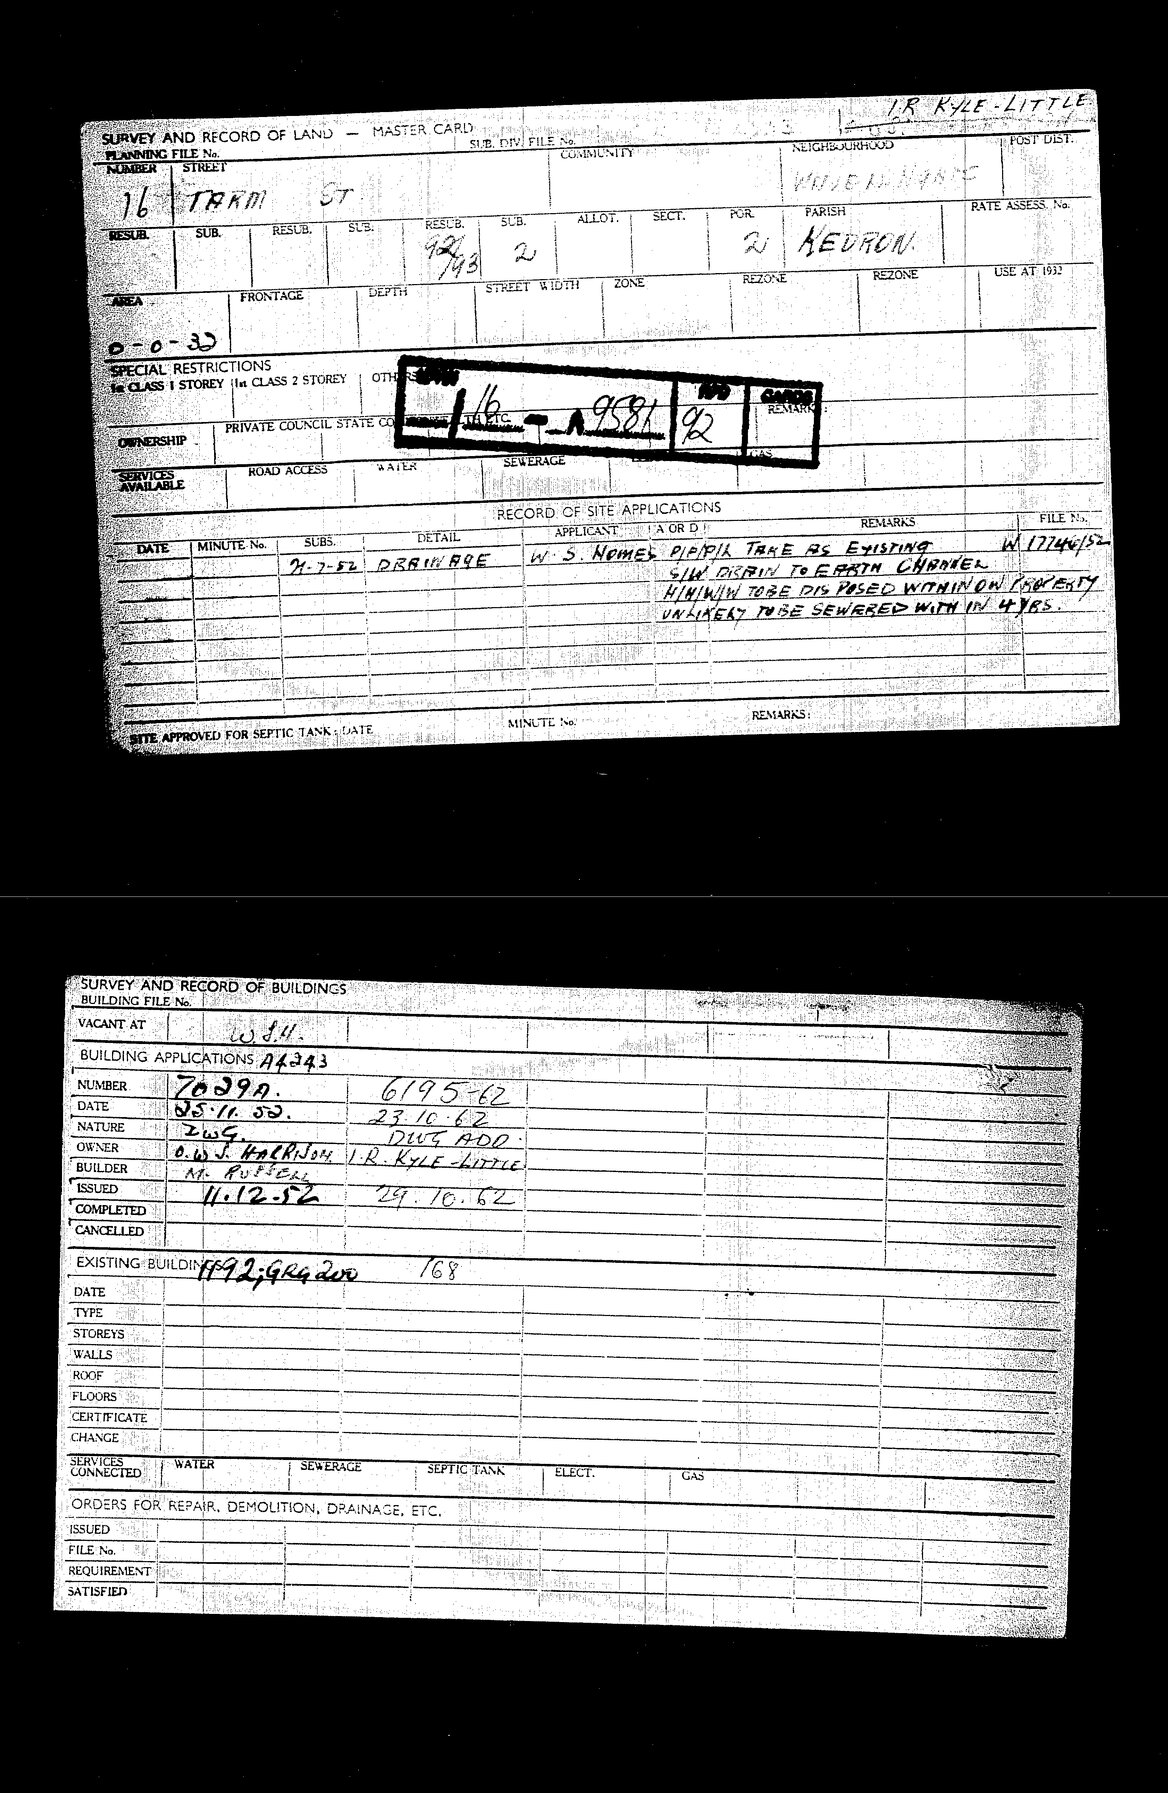 I.R KYLE-LITTLE
SURVEY AND RECORD OF LAND — MASTER CARD
SUB. DIV. FILE No.
PLANNING FILE No. COMMUNITY NEIGHBOURHOOD POST DIST.
NUMBER STREET
16 TARM ST.
RESUB. SUB. RESUB. SUB. RESUB. SUB. ALLOT. SECT. POR. PARISH RATE ASSESS. No.
92/93 2 2 KEDRON.
AREA FRONTAGE DEPTH STREET WIDTH ZONE REZONE REZONE USE AT 1932
0-0-32
SPECIAL RESTRICTIONS
1st CLASS 1 STOREY 1st CLASS 2 STOREY REMARKS:
16 A 9581 92 CARDS
OWNERSHIP PRIVATE COUNCIL STATE
SERVICES AVAILABLE ROAD ACCESS WATER SEWERAGE GAS
RECORD OF SITE APPLICATIONS
DATE MINUTE No. SUBS. DETAIL APPLICANT A OR D REMARKS FILE No.
21-7-52 DRAINAGE W.S. HOMES P/P/P/L TAKE AS EXISTING W 17746/52
S/W DRAIN TO EARTH CHANNEL
H/H/W/W TO BE DISPOSED WITHIN OW PROPERTY
UNLIKELY TO BE SEWERED WITH IN 4 YRS.
SITE APPROVED FOR SEPTIC TANK: DATE MINUTE No. REMARKS:
SURVEY AND RECORD OF BUILDINGS
BUILDING FILE No.
VACANT AT W.S.H.
BUILDING APPLICATIONS A4243
NUMBER 7029A. 6195-62
DATE 25.11.52. 23.10.62
NATURE DWG. DWG ADD.
OWNER O.W.S. HARRISON I.R. KYLE-LITTLE
BUILDER M. RUSSELL
ISSUED 11.12.52 29.10.62
COMPLETED
CANCELLED
EXISTING BUILDINGS 1192; GRG 200 168
DATE
TYPE
STOREYS
WALLS
ROOF
FLOORS
CERTIFICATE
CHANGE
SERVICES CONNECTED WATER SEWERAGE SEPTIC TANK ELECT. GAS
ORDERS FOR REPAIR, DEMOLITION, DRAINAGE, ETC.
ISSUED
FILE No.
REQUIREMENT
SATISFIED